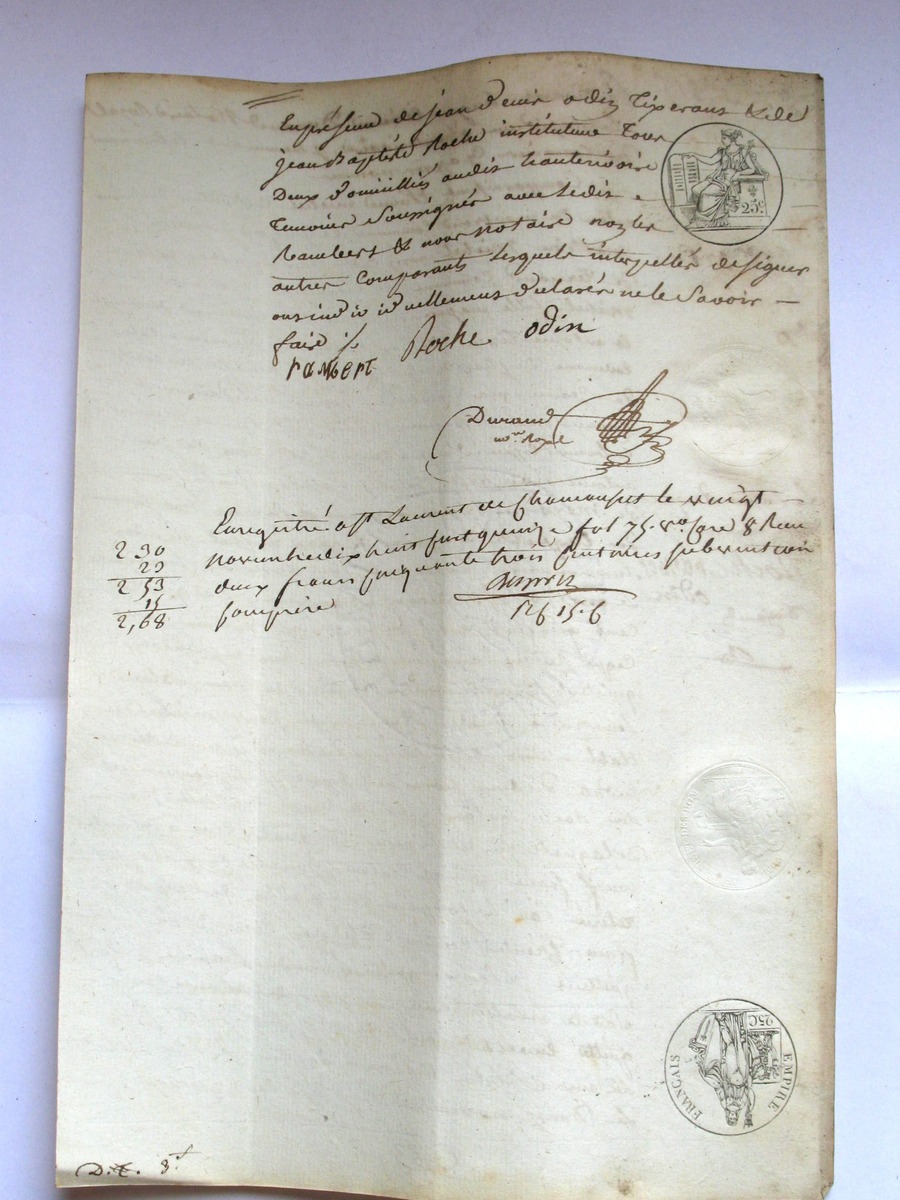 En présence de jean denis odin Tixerant & de
jean Baptiste Roche instituteur Tous
Deux domiciliés audit hauterivoire
Temoins Soussignés avec Ledit
Rambert & nous notaire non les
autres Comparants lesquels interpellés de signer
ont individuellement déclaré ne le Savoir
faire
rambert Roche odin
25c.
Durand
no.re Royal
Enregistré a St Laurent de Chamousset le vingt
novembre dix huit cent quinze fol 75 v.o Case 8 Reçu
deux francs cinquante trois centimes subvention
comprise
2 30
23
2 53
15
2,68
25C
EMPIRE FRANÇAIS